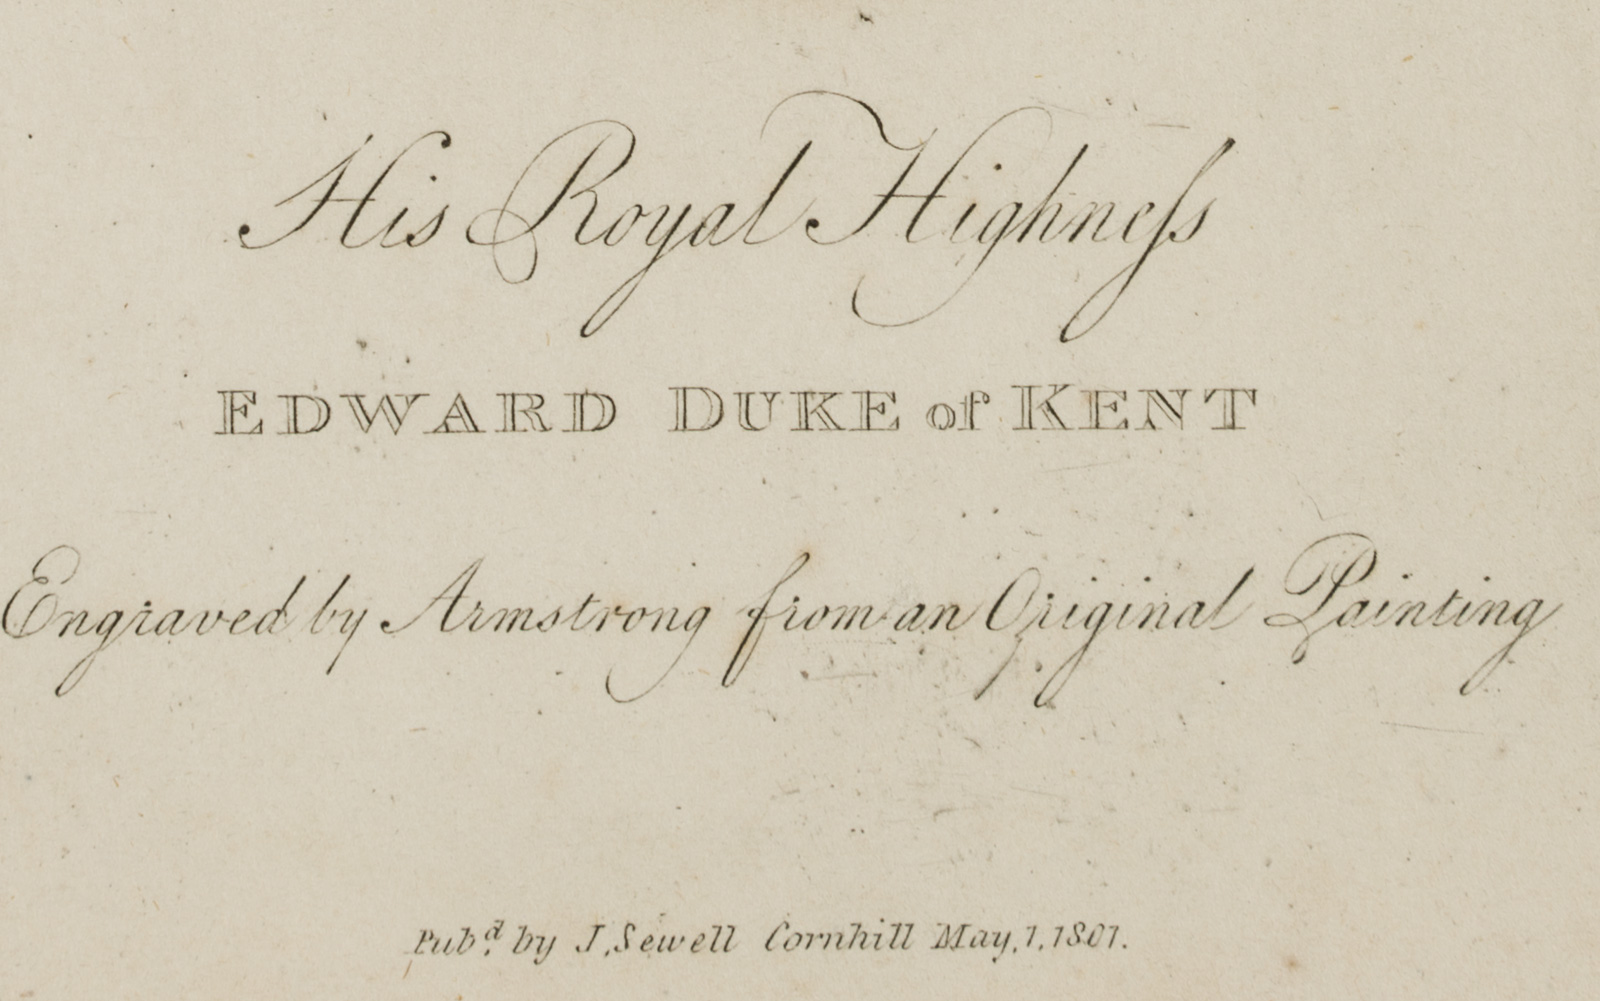 His Royal Highneſs
EDWARD DUKE of KENT
Engraved by Armstrong from an Original Painting
Pubd. by J. Sewell Cornhill May, 1, 1801.